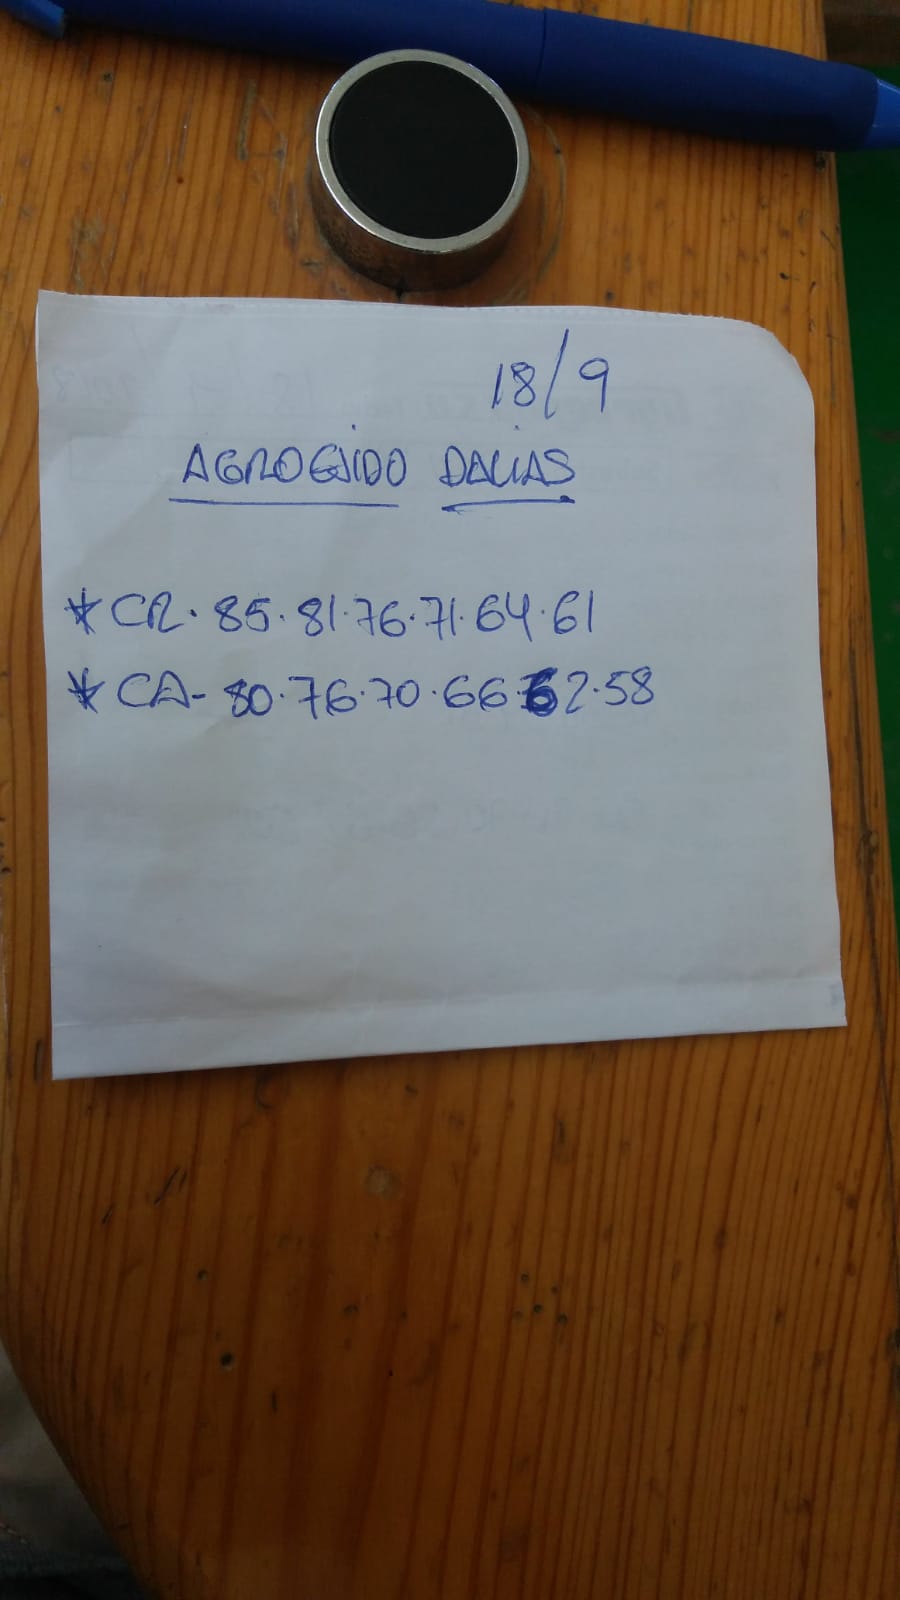 18/9
AGROEJIDO DALIAS
*CR. 85.81.76.71.64.61
*CA- 80.76.70.66.62.58